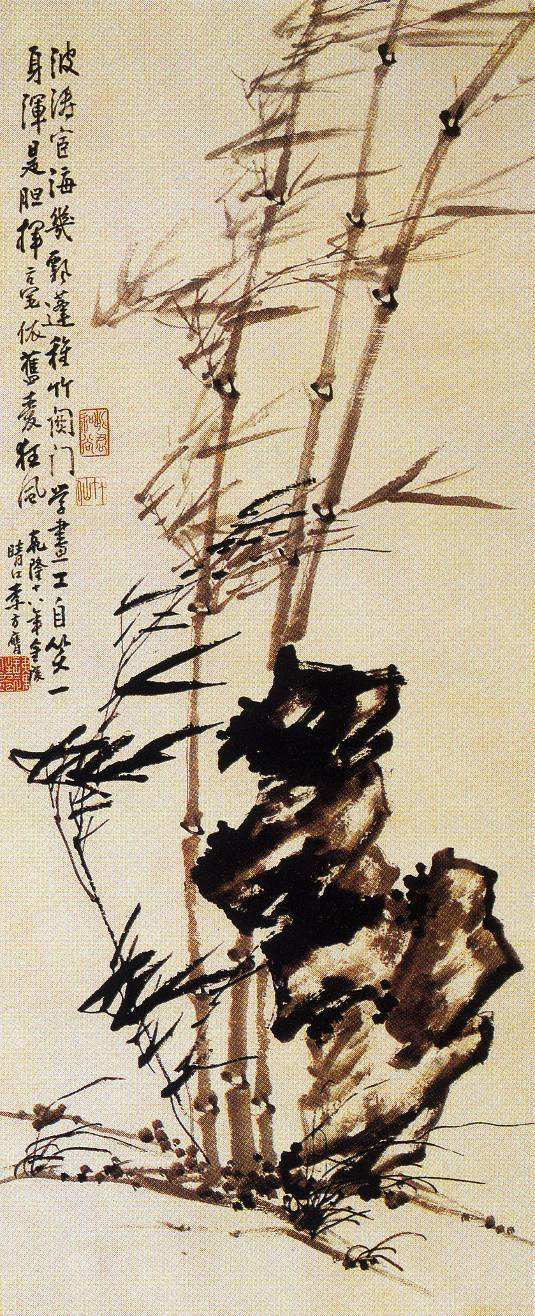 波涛宦海幾飄蓬種竹関门学畫工自笑一
身渾是胆揮毫依舊愛狂风
乾隆十八年金陵
晴江李方膺